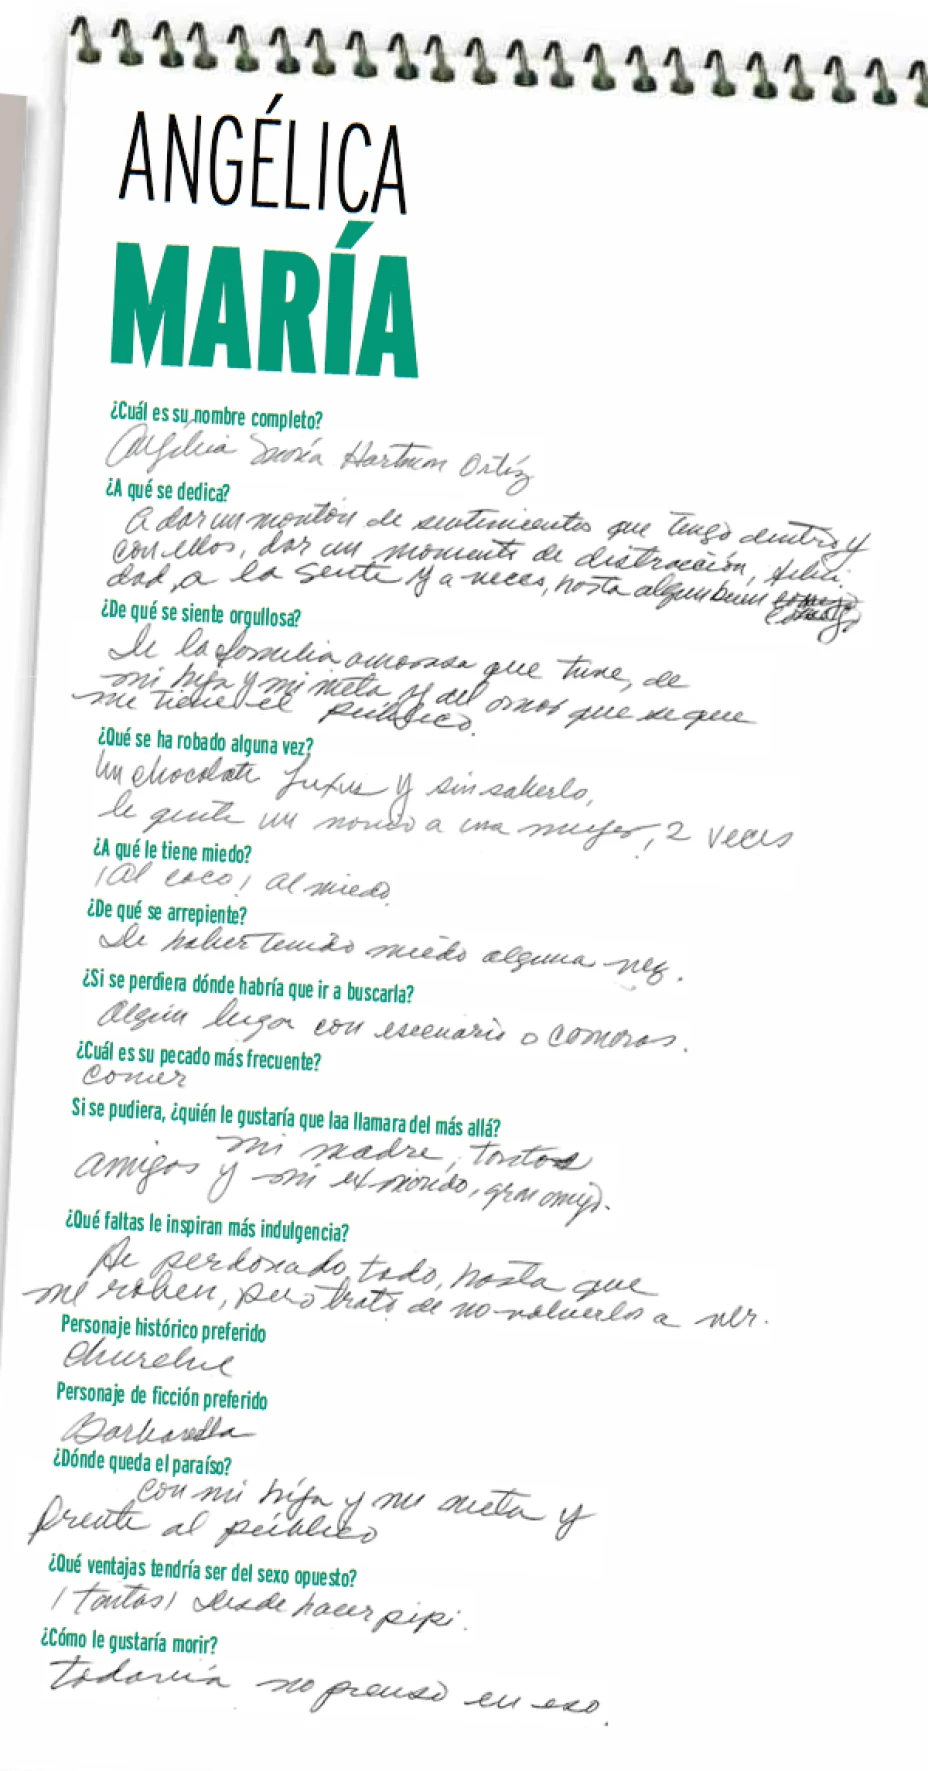 ANGÉLICA
MARÍA
¿Cuál es su nombre completo?
Angélica María Hartman Ortíz
¿A qué se dedica?
A dar un montón de sentimientos que tengo dentro y
con ellos, dar un momento de distracción, felici
dad, a la gente y a veces, hasta algún buen consejo
¿De qué se siente orgullosa?
De la familia amorosa que tuve, de
mi hija y mi nieta y del amor que se que
me tiene el público.
¿Qué se ha robado alguna vez?
Un chocolate y sin saberlo,
le quité un novio a una mujer, 2 veces
¿A qué le tiene miedo?
¡Al coco! Al miedo.
¿De qué se arrepiente?
De haber tenido miedo alguna vez.
¿Si se perdiera dónde habría que ir a buscarla?
Algún lugar con escenario o cámaras.
¿Cuál es su pecado más frecuente?
Comer
Si se pudiera, ¿quién le gustaría que laa llamara del más allá?
mi madre, tantos
amigos y mi ex marido, gran amigo.
¿Qué faltas le inspiran más indulgencia?
He perdonado todo, hasta que
me roben, pero trato de no volverlos a ver.
Personaje histórico preferido
Churchil
Personaje de ficción preferido
Barbarella
¿Dónde queda el paraíso?
con mi hija y mi nieta y
frente al público
¿Qué ventajas tendría ser del sexo opuesto?
¡tantas! Desde hacer pipi.
¿Cómo le gustaría morir?
todavía no pienso en eso.